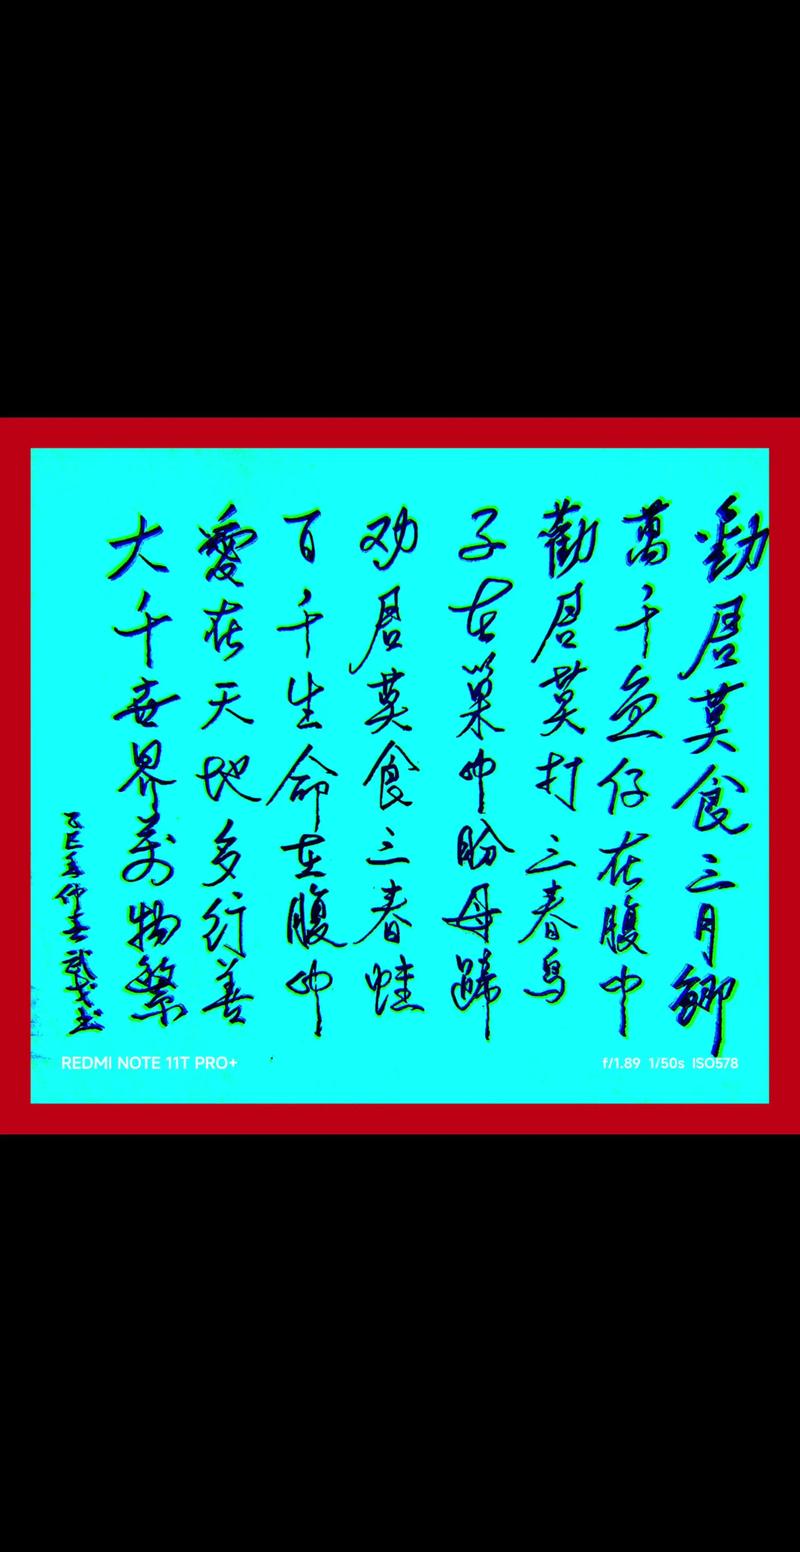 勸居莫食三月鲫
萬千魚仔在腹中
勸居莫打三春鸟
子在巢中盼母歸
劝居莫食三春蛙
百千生命在腹中
愛在天地多行善
大千世界万物繁
乙巳年仲春 武戈书
REDMI NOTE 11T PRO+
f/1.89 1/50s ISO578